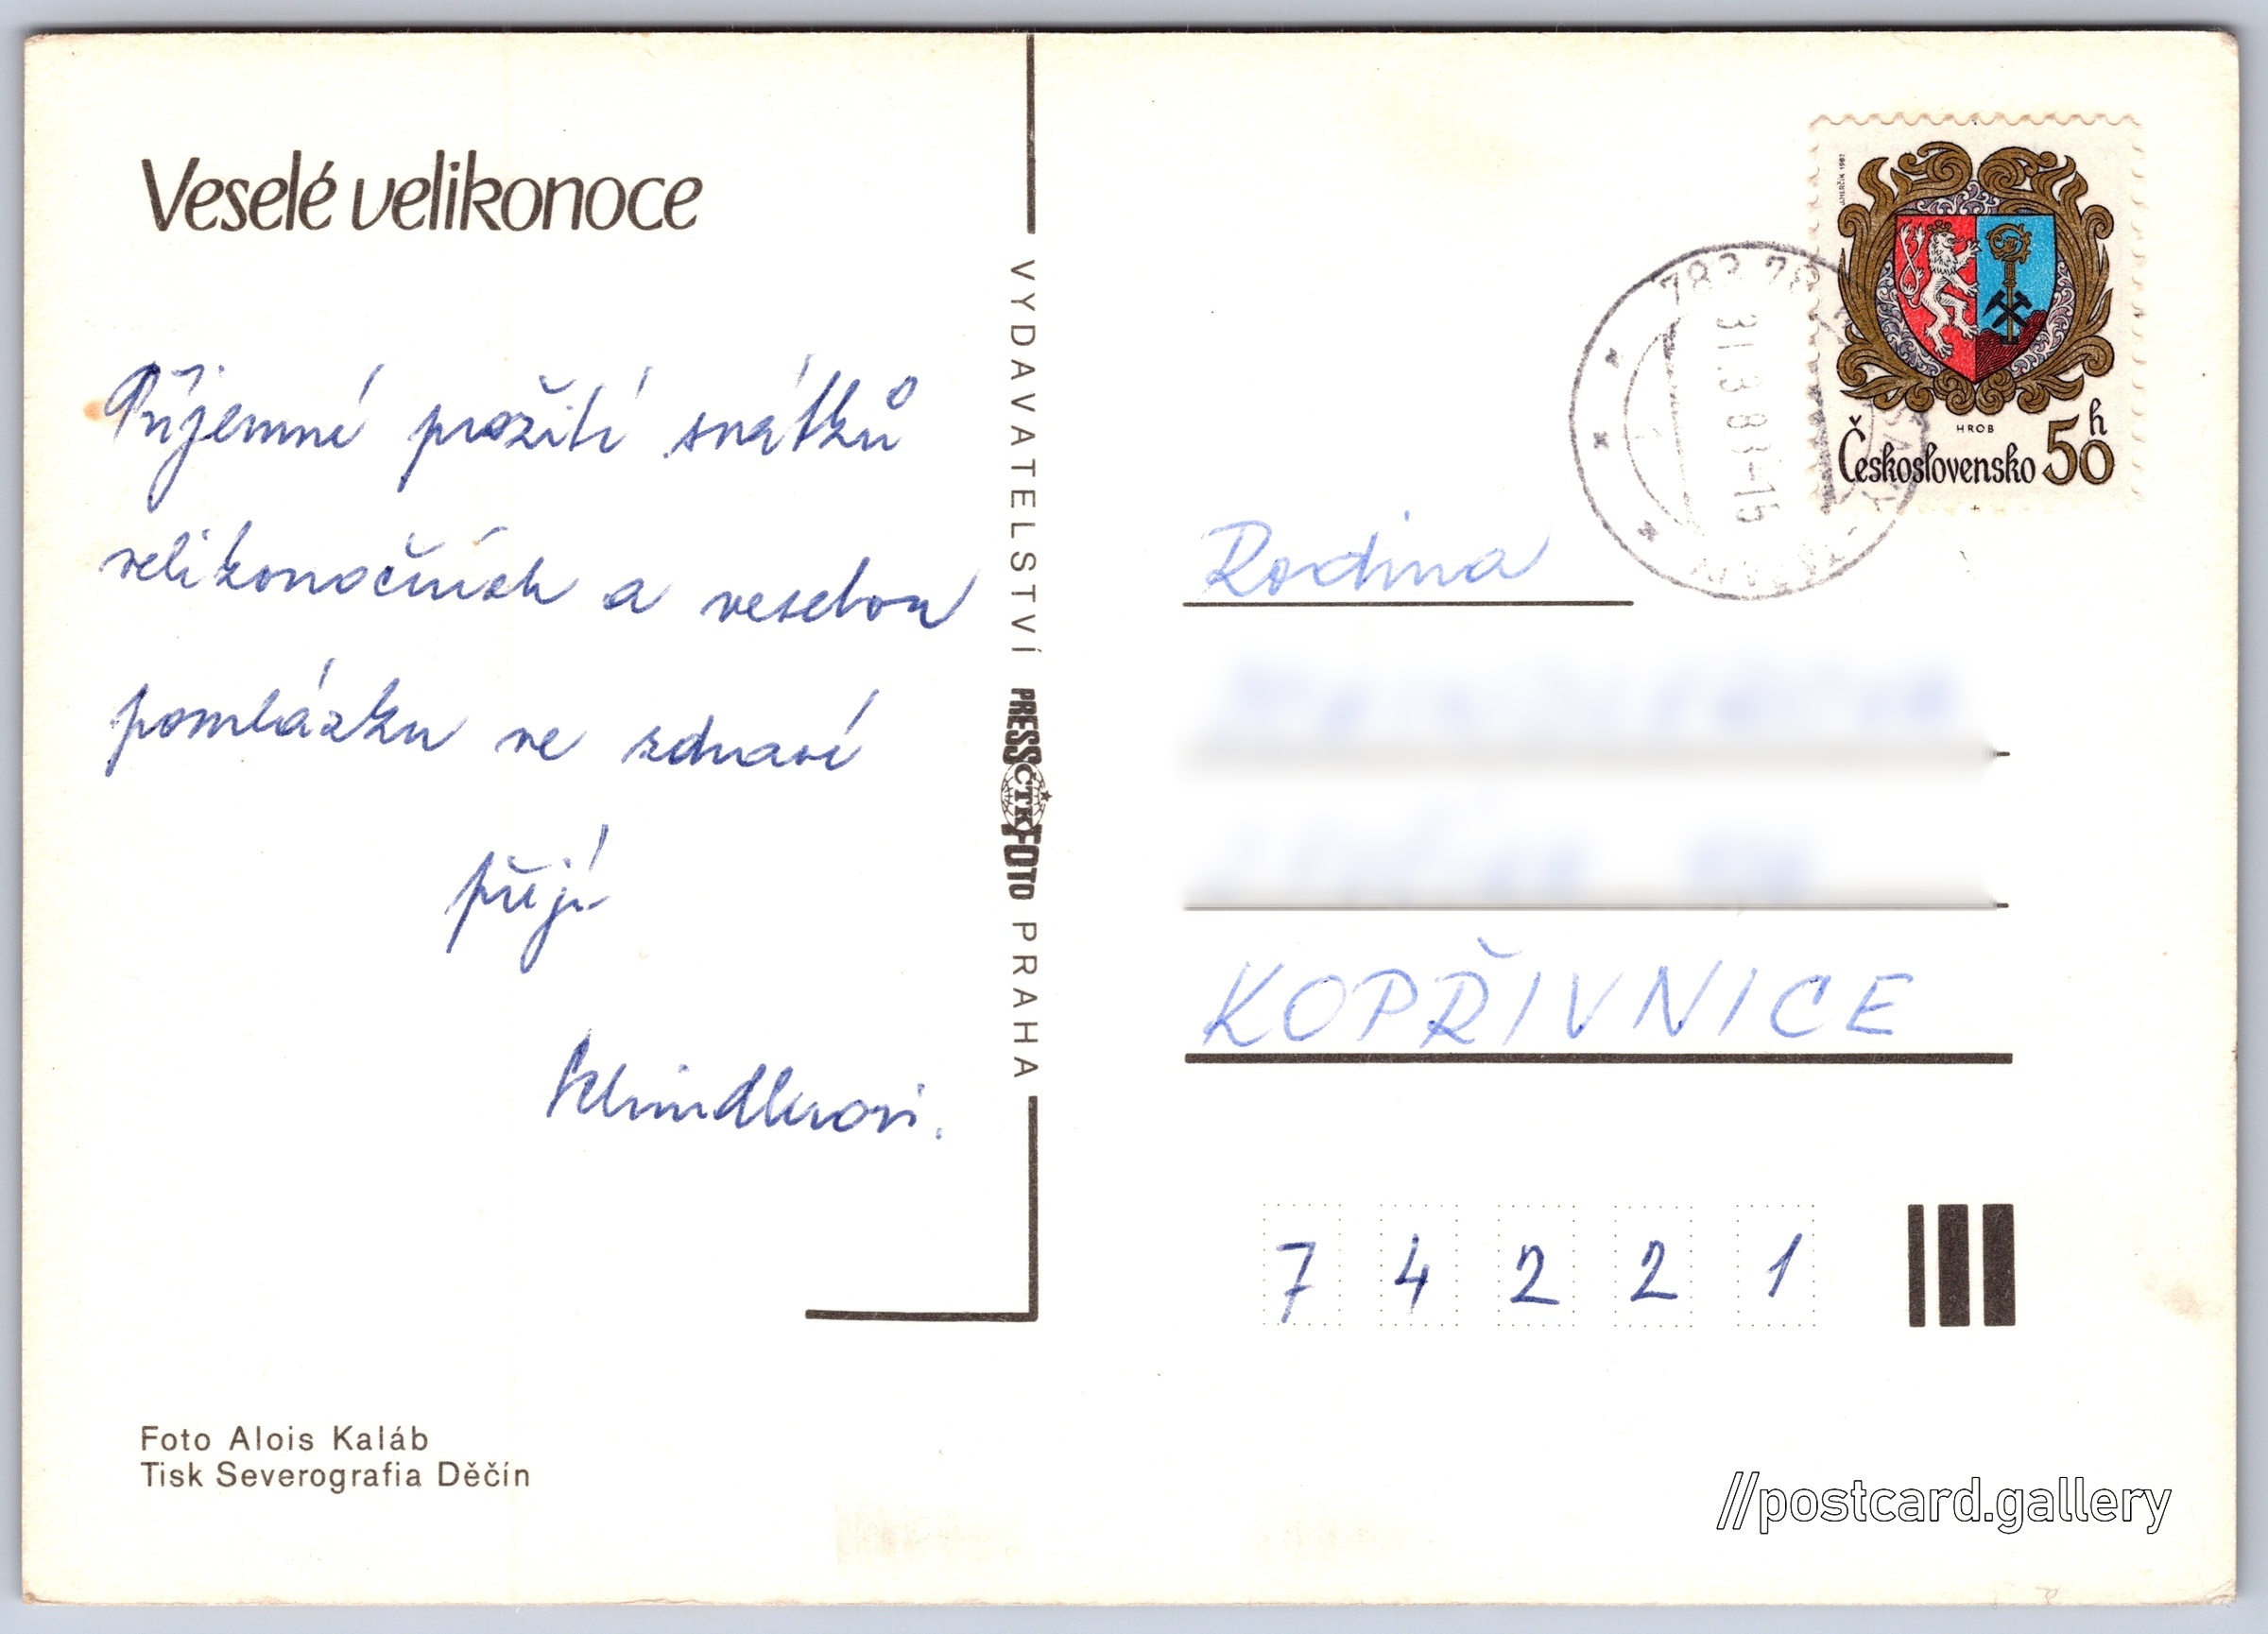 Veselé velikonoce
Příjemné prožití svátků
velikonočních a veselou
pomlázku ve zdraví
přejí
Schindlerovi.
Foto Alois Kaláb
Tisk Severografia Děčín
VYDAVATELSTVÍ PRESSFOTO PRAHA
ČTK
783 78
31.3.83-15
HROB
Československo 50h
Rodina
KOPŘIVNICE
7 4 2 2 1
//postcard.gallery